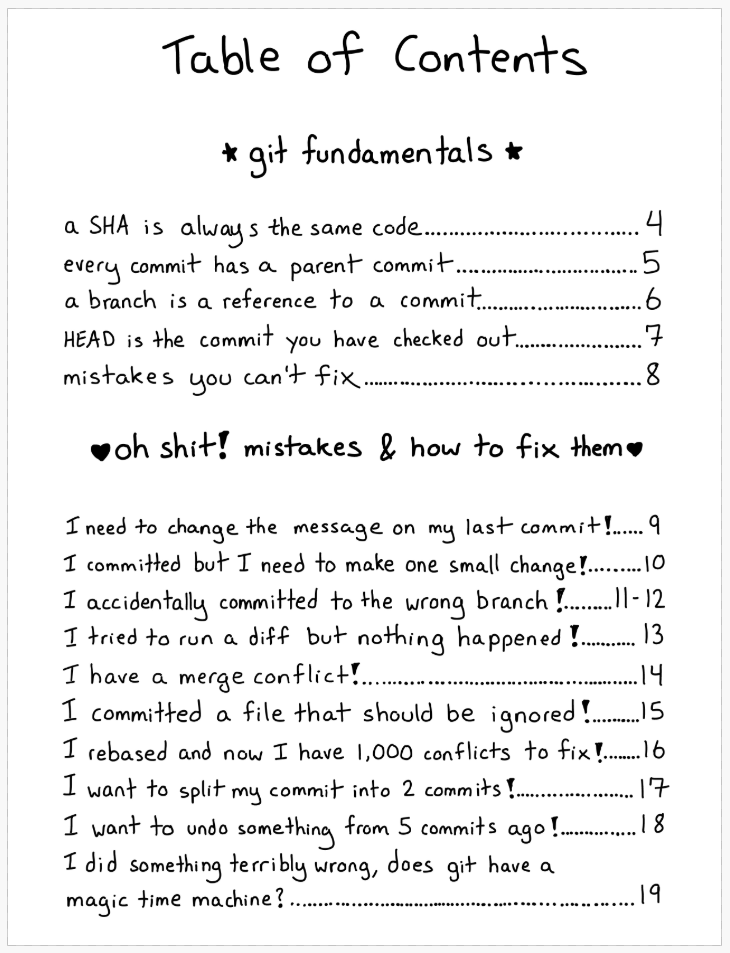 Table of Contents
★ git fundamentals ★
a SHA is always the same code.................................... 4
every commit has a parent commit.................................... 5
a branch is a reference to a commit.................................6
HEAD is the commit you have checked out.......................7
mistakes you can't fix................................................ 8
♥oh shit! mistakes & how to fix them♥
I need to change the message on my last commit!...... 9
I committed but I need to make one small change!.........10
I accidentally committed to the wrong branch!.........11-12
I tried to run a diff but nothing happened!........... 13
I have a merge conflict!................................................14
I committed a file that should be ignored!..........15
I rebased and now I have 1,000 conflicts to fix!........16
I want to split my commit into 2 commits!........................ 17
I want to undo something from 5 commits ago!...............18
I did something terribly wrong, does git have a
magic time machine?............................................................19